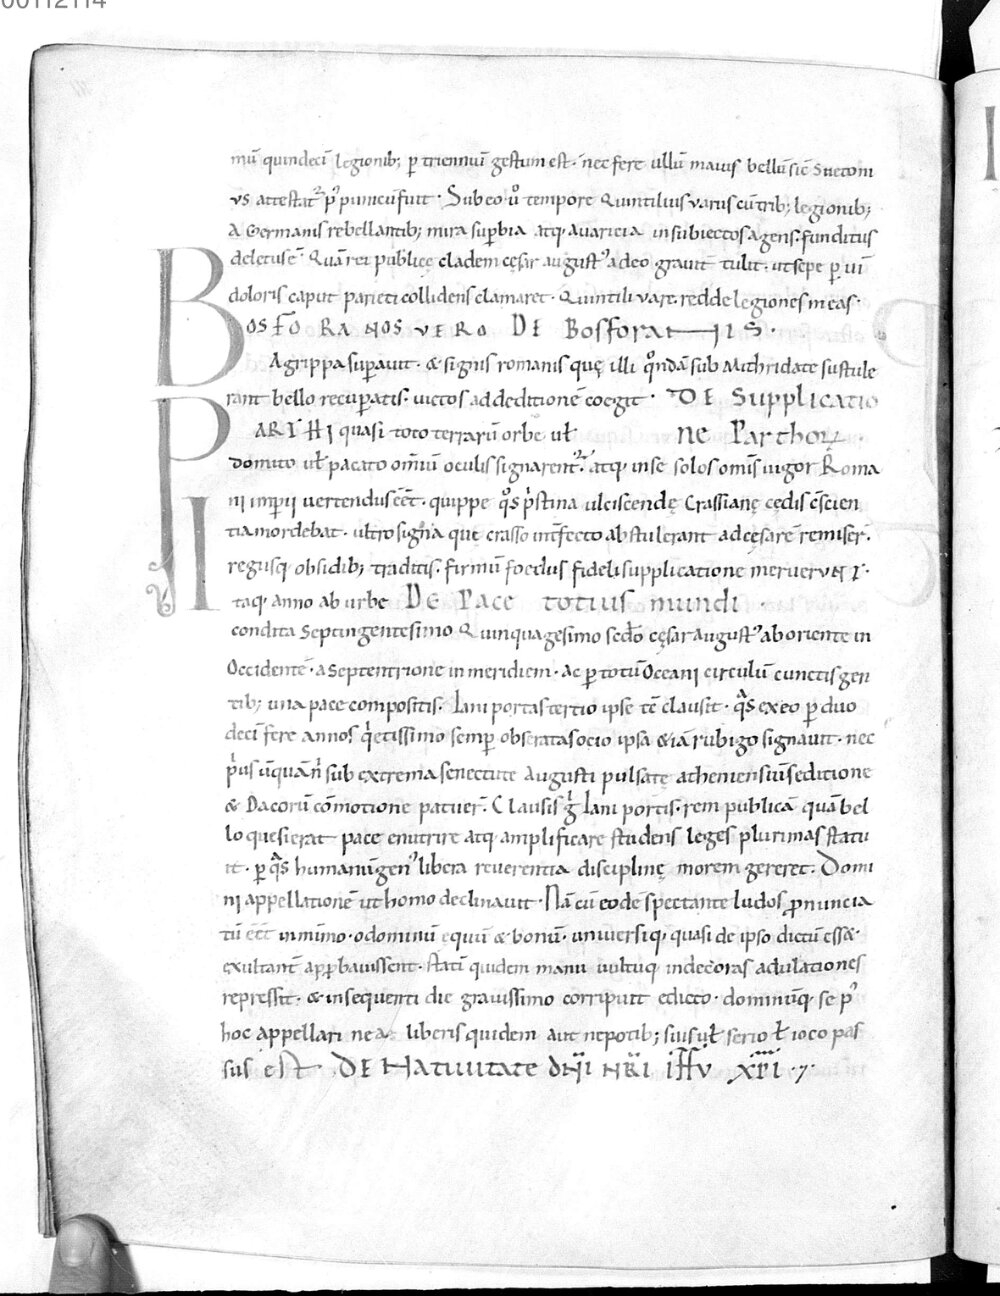 00112114
mū quindecī legionib; ꝑ trienniū gestum est · nec fere ullū maius bellū sic̄ Sueton
us attestat᷑ ꝑ punicū fuit · Sub eo ů tempore Quintilius varus cū trib; legionib;
A Germanis rebellantib; mira suꝑbia atq; avaricia in subiectos agens · funditus
deletus ē · Quā rei publicę cladem cęsar august᾽ adeo grauit᷑ tulit · ut sepe ꝑ uī
doloris caput parieti collidens clamaret · Quintili vare redde legiones meas ·
BOSFORANOS VERO DE BosforanIS ·
Agrippa suꝑauit · & signis romanis quę illi qͦndā sub Mithridate sustule
rant bello recuꝑatis · uictos ad deditionē coegit · DE Supplicatio
PARTHI quasi toto terrarū orbe uł ne Parthoꝝ ·
domito uł pacato omīū oculis signarent᷑ · atq; in se solos omīs uigor Roma
ni imꝑii uertendus ēēt · quippe qͦs pͥstina ulciscendę Crassianę cędis cscien
tia mordebat · ultro signa que crasso int̄fecto abstulerant ad cęsarē remiser̄ ·
regusq; obsidib; traditis · firmū foedus fideli supplicatione meruerunt ·
Itaq; anno ab urbe DE Pace totius mundi ·
condita Septingentesimo Quinquagesimo scdo cęsar august᾽ ab oriente in
Occidentē · a Septentrione in meridiem · ac ꝑ totū Oceani circulū cunctis gen
tib; una pace compositis · Iani portas tertio ipse tc̄ clausit · qͣs ex eo ꝑ duo
decī fere annos qͥetissimo semꝑ obseratas ocio ipsa & iā rubigo signauit · nec
pͥus ūquā nͥ sub extrema senectute Augusti pulsatę atheniensiū seditione
& Dacorū cōmotione patuer̄ · Clausis gͥ Iani portis · rem publicā quā bel
lo quesierat pace enutrire atq; amplificare studens leges plurimas statu
it · ꝑ qͣs humanū gen᾽ libera reuerentia disciplinę morem gereret · Domi
ni appellationē ut homo declinauit · Nā cū eodē spectante ludos ꝓnuncia
tū ēēt in mimo · o dominū equū & bonū · uniuersiq; quasi de ipso dictū ess&
exultant᷑ apꝓbauissent · statī quidem manu uultuq; indecoras adulationes
repressit · & insequenti die grauissimo corripuit edicto · dominūq; se p᾽
hoc appellari ne a liberis quidem aut nepotib; suis uł serio ł ioco pas
sus est · DE Natiuitate dn̄i nr̄i ih̄u xp̄i · 7